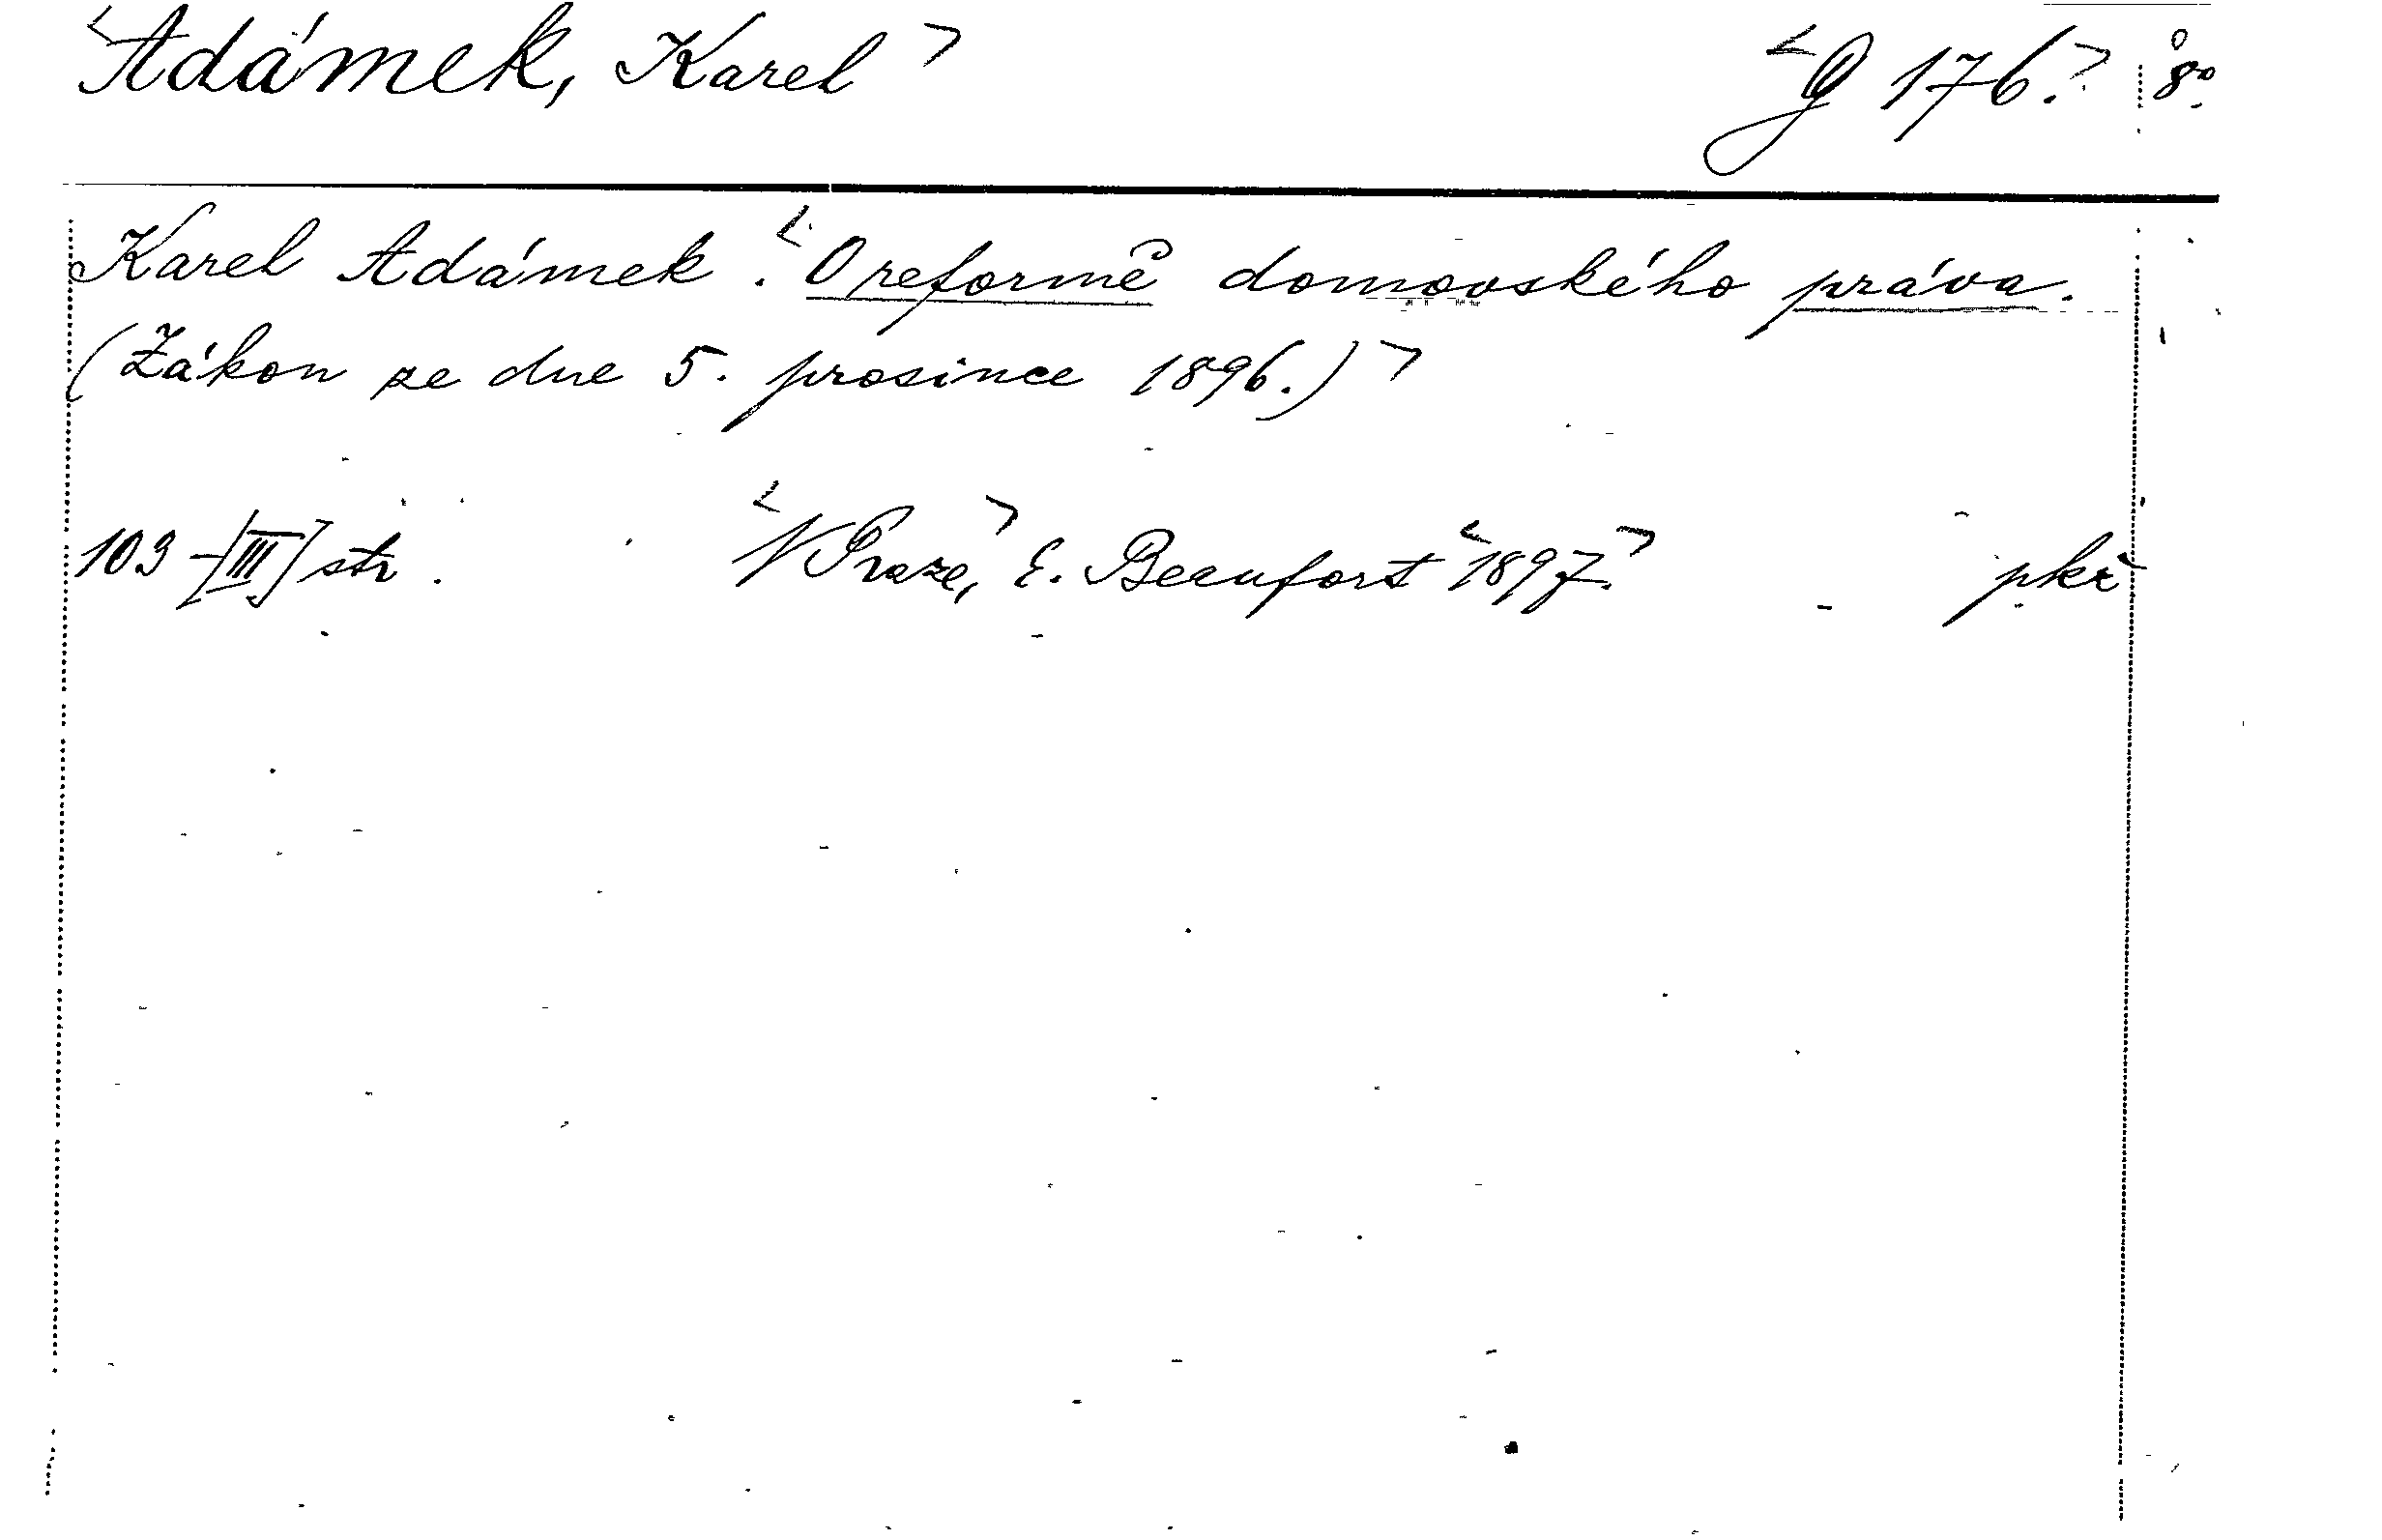 <Adámek, Karel> <G 176.> 8°.
Karel Adámek. <O reformě domovského práva.
(Zákon ze dne 5. prosince 1896.)>
103-[III] str. <V Praze,> E. Beaufort <1897.> pkř